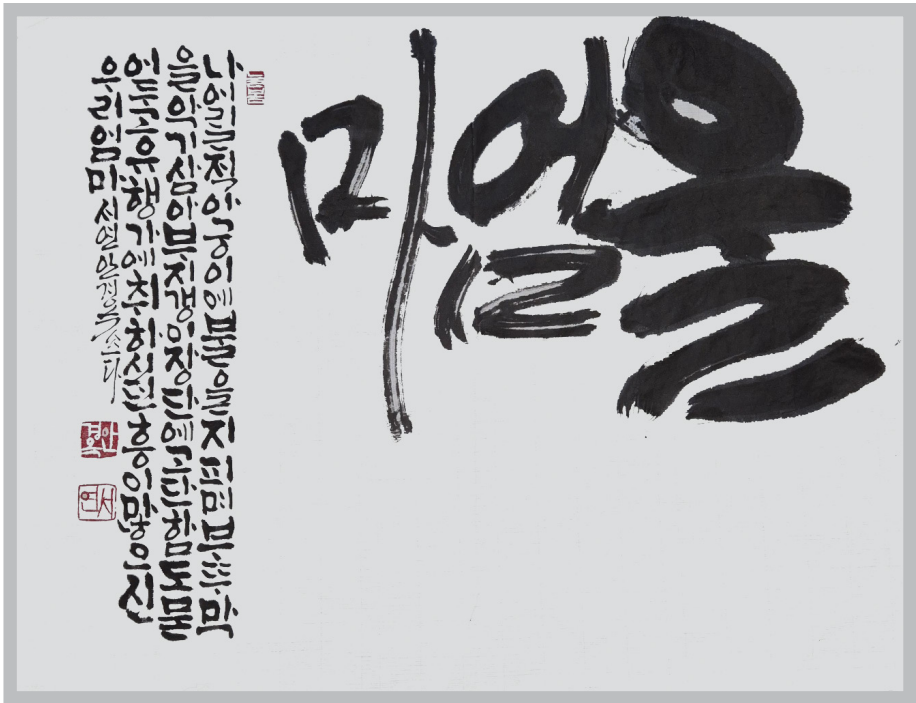 울엄마
나어릴적아궁이에불을지피며부뚜막
을악기삼아부지갱이장단에고단함도묻
어두고유행가에취하시던흥이많으신
우리엄마 서연 안경숙쓰다
서연